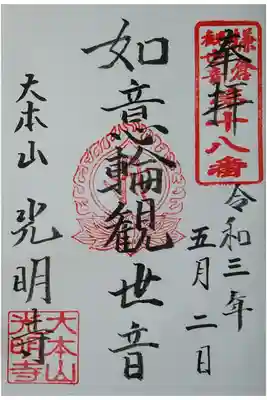 奉拝
鎌倉
観世音
十八番
令和三年
五月二日
如意輪観世音
大本山 光明寺
大本山
光明寺